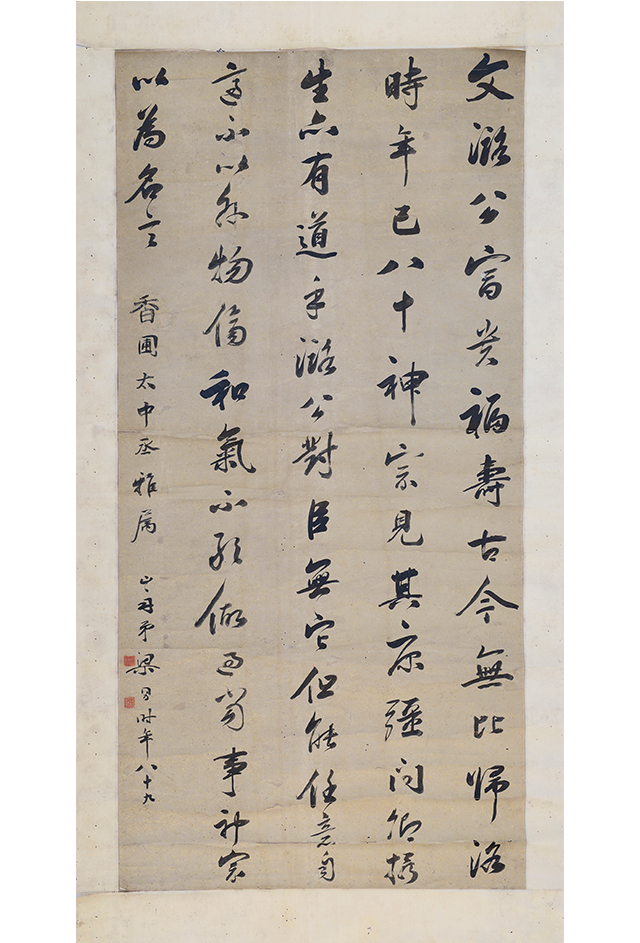 文潞公富貴福壽古今無比歸洛
時年已八十神宗見其康彊問卿攝
生亦有道乎潞公對臣無它但能任意自
適不以外物傷和氣不敢做過當事神宗
以為名言
香圃太中丞雅屬
山舟弟梁同書時年八十九